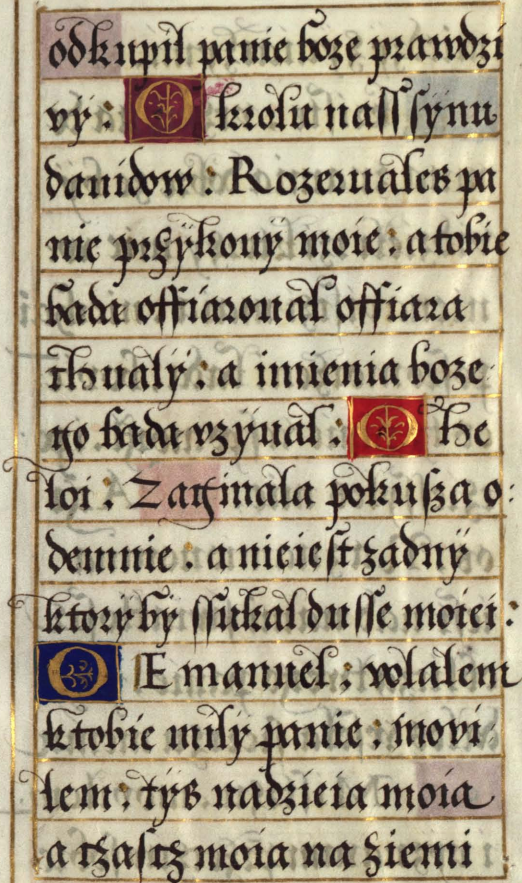 odkupil panie boze prawdzi
vÿ: O krolu nassſ sÿnu
dauidow: Rozeruales pa
nie przÿkouÿ moie: a tobie
bada offiaroual offiara
chualÿ: a imienia boze
go bada vzÿual: O he
loi: Zatzinala pokusza o:
demnie: a nieiest zadnÿ
ktorÿ bÿ ssukal dusse moiei:
O Emanuel: volalem
k tobie milÿ panie: movi
lem: tÿs nadzieia moia
a tzastz moia na ziemi